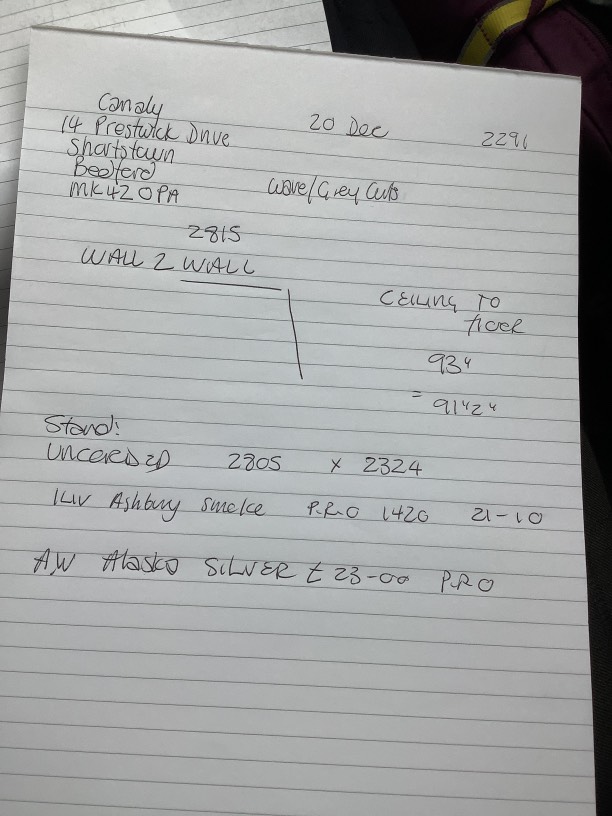 Candy 20 Dec 2291
14 Prestwick Drive
Shortstown
Bedford
MK42 0PA Wave/Grey Cuts
2815
WALL 2 WALL
CEILING TO
floor
93"
= 91½"
Stand:
UNCOREDED 2805 x 2324
ILIV Ashbury Smoke P.R.O 1420 21-10
AW Alasko SILVER £23-00 P.R.O